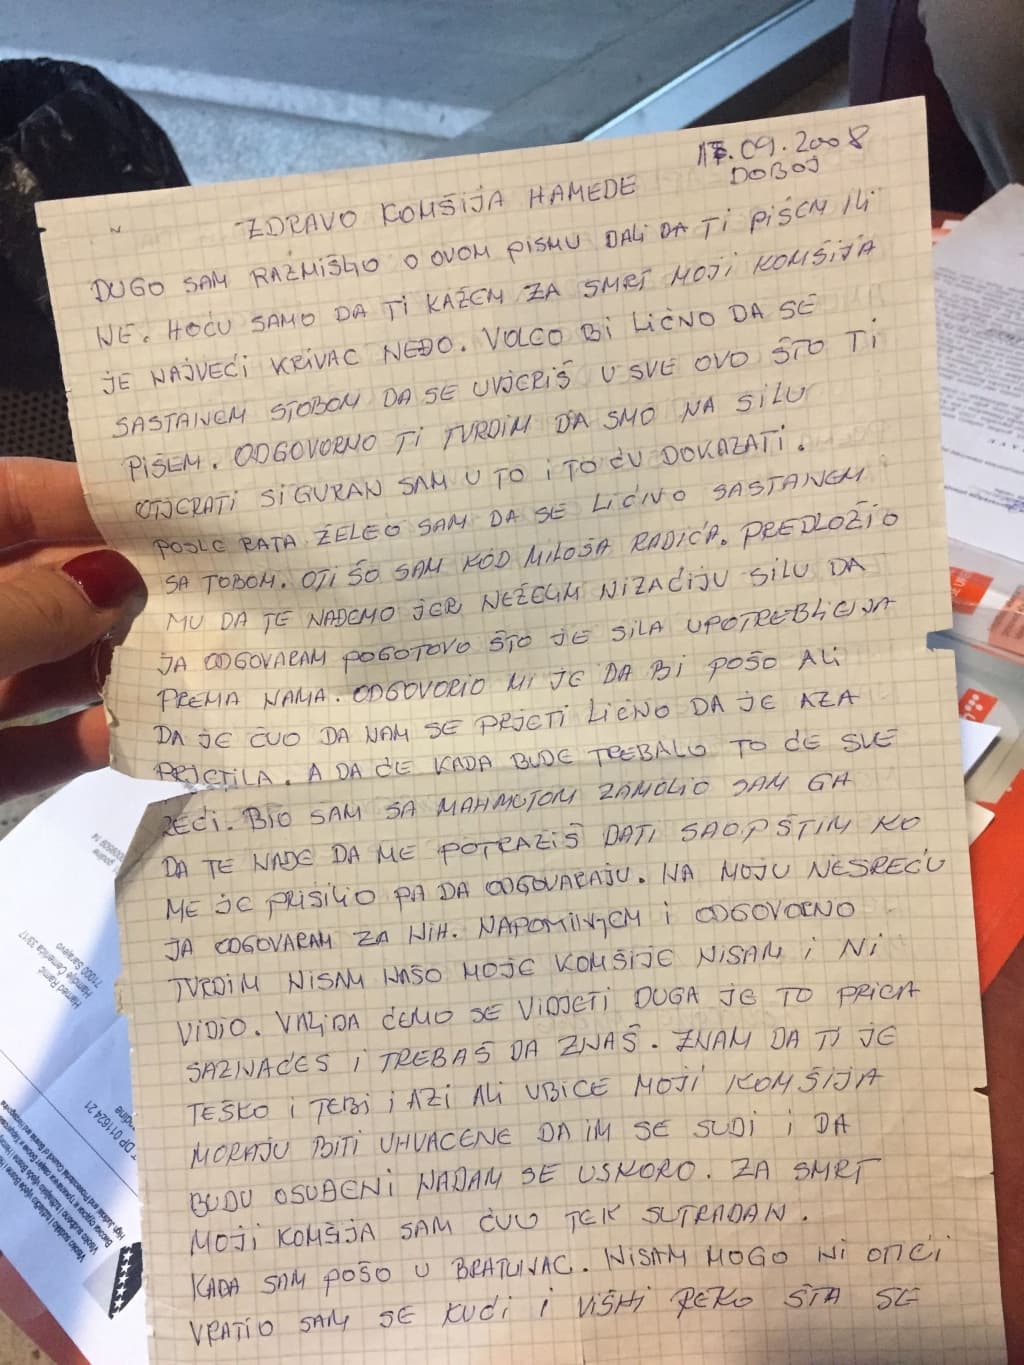 15.09.2008
DOBOJ
ZDRAVO KOMŠIJA HAMEDE
DUGO SAM RAZMIŠLJO O OVOM PISMU DALI DA TI PIŠEM ILI
NE. HOĆU SAMO DA TI KAŽEM ZA SMRT MOJI KOMŠIJA
JE NAJVEĆI KRIVAC NEĐO. VOLEO BI LIČNO DA SE
SASTANEM STOBOM DA SE UVJERIŠ U SVE OVO ŠTO TI
PIŠEM. ODGOVORNO TI TVRDIM DA SMO NA SILU
OTJERATI SIGURAN SAM U TO I TO ĆU DOKAZATI.
POSLE RATA ŽELEO SAM DA SE LIČNO SASTANEM
SA TOBOM. OTIŠO SAM KOD MILOŠA RADIĆA. PREDLOŽIO
MU DA TE NAĐEMO JER NEŽELIM NIZAČIJU SILU DA
JA ODGOVARAM POGOTOVO ŠTO JE SILA UPOTREBLJENJA
PREMA NAMA. ODGOVORIO MI JE DA BI POŠO ALI
DA JE ČUO DA NAM SE PRJETI LIČNO DA JE AZA
PRJETILA. A DA ĆE KADA BUDE TREBALO TO ĆE SVE
REĆI. BIO SAM SA MAHMUTOM ZAMOLIO SAM GA
DA TE NAĐE DA ME POTRAŽIŠ DATI SAOPŠTIM KO
ME JE PRISILIO PA DA ODGOVARAJU. NA MOJU NESREĆU
JA ODGOVARAM ZA NJIH. NAPOMINJEM I ODGOVORNO
TVRDIM NISAM NAŠO MOJE KOMŠIJE NISAM I NI
VIDIO. VALJDA ĆEMO SE VIDJETI DUGA JE TO PRIČA
SAZNAĆEŠ I TREBAŠ DA ZNAŠ. ZNAM DA TI JE
TEŠKO I TEBI I AZI ALI UBICE MOJI KOMŠIJA
MORAJU BITI UHVAĆENE DA IM SE SUDI I DA
BUDU OSUĐENI NADAM SE USKORO. ZA SMRT
MOJI KOMŠJA SAM ČUO TEK SUTRADAN.
KADA SAM POŠO U BRATUNAC. NISAM MOGO NI OTIĆI
VRATIO SAM SE KUĆI I VIŠNJI REKO ŠTA SE
Hamed Ramić
71000 Sarajevo